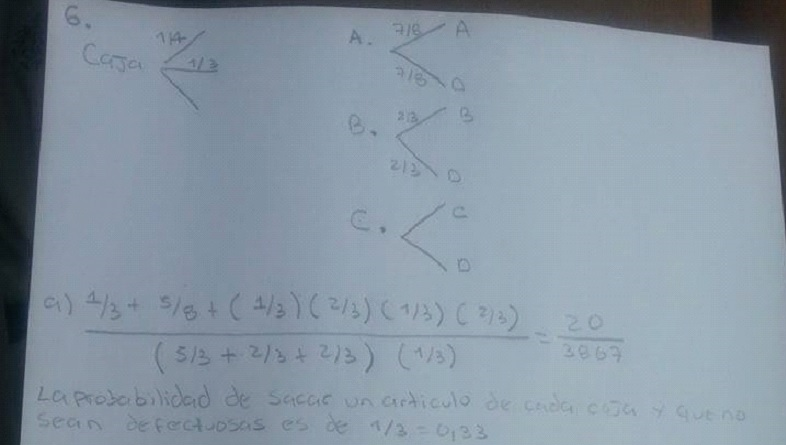 6.
Caja 1/3
A. 7/8 A
7/8 D
B. 2/3 B
2/3 D
C. C
D
a) 1/3 + 5/8 + (1/3)(2/3)(1/3)(2/3)
(5/3 + 2/3 + 2/3) (1/3)
= 20
3867
La probabilidad de sacar un articulo de cada caja y que no
sean defectuosas es de 1/3 = 0,33